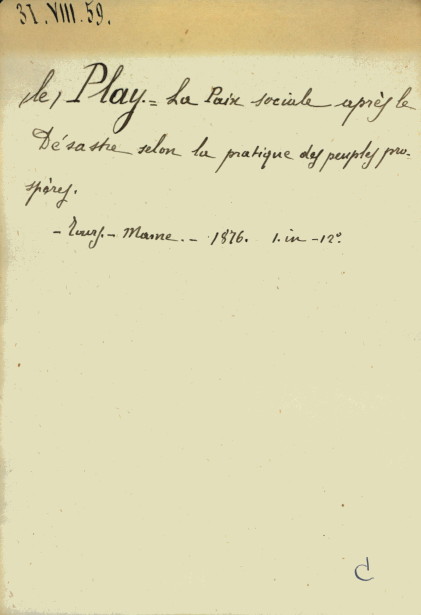 31.VIII.59.
(le) Play. = La Paix sociale après le
Désastre selon la pratique des peuples pro-
spères.
- Tours. - Mame. - 1876. 1. in - 12°.
C